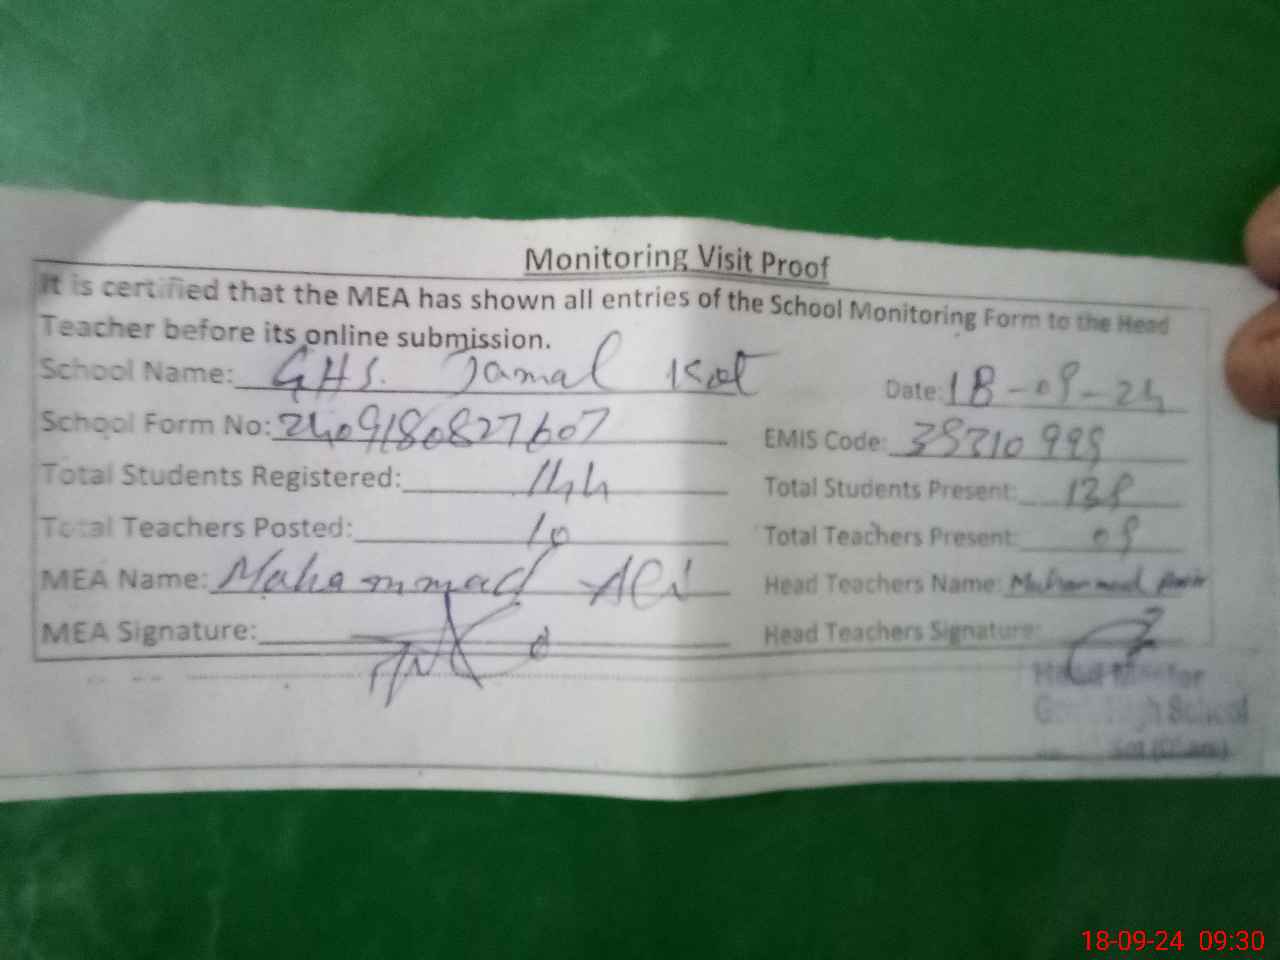 Monitoring Visit Proof
It is certified that the MEA has shown all entries of the School Monitoring Form to the Head
Teacher before its online submission.
School Name: GHS. Jamal Kot Date: 18-09-24
School Form No: 2409180827607 EMIS Code:
Total Students Registered: 144 Total Students Present: 139
Total Teachers Posted: 10 Total Teachers Present: 09
MEA Name: Muhammad Ali Head Teachers Name: Muhammad
MEA Signature: Head Teachers Signature:
Head Master
Govt. High School
18-09-24 09:30